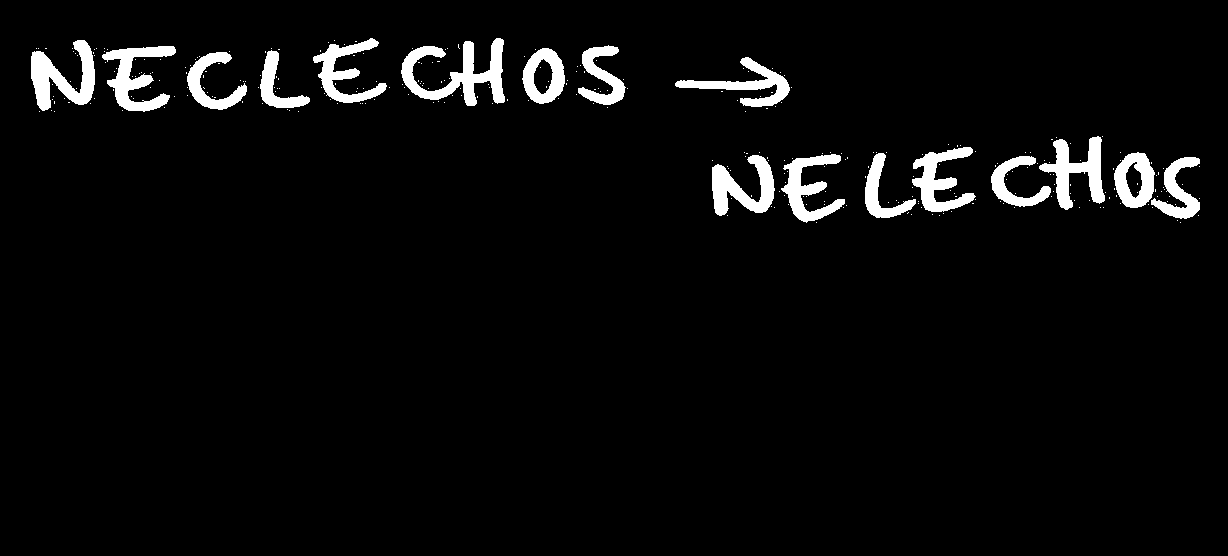 NECLECHOS →
NELECHOS